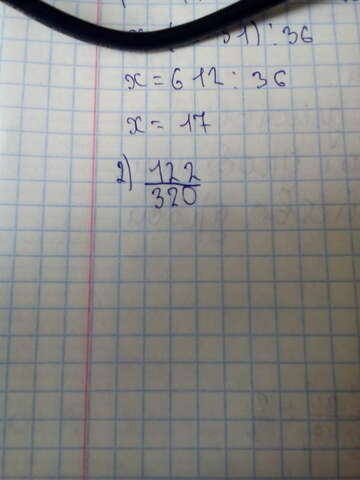 31) : 36
x = 612 : 36
x = 17
2) 122
320